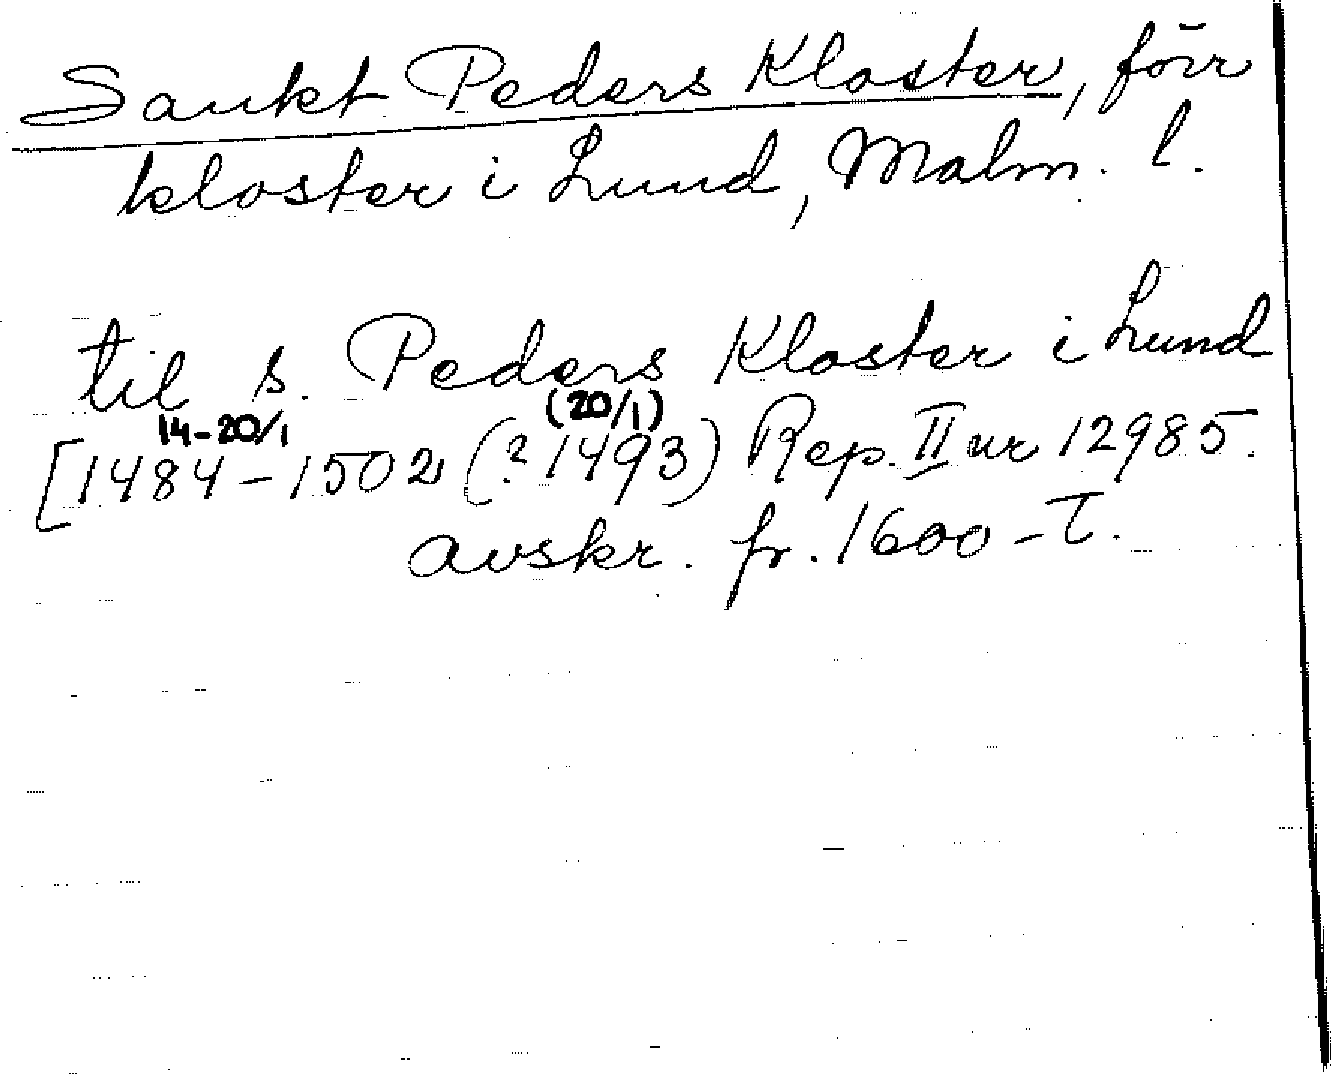 Sankt Peders Kloster, förr
kloster i Lund, Malm. l.
til s. Peders Kloster i Lund
14-20/1 (20/1)
[1484-1502 (? 1493) Rep. II nr 12985.
avskr. fr. 1600-t.